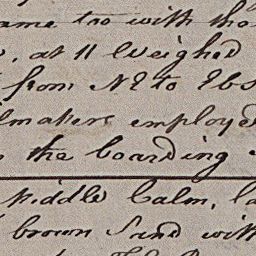 ame too with tho
, at 11 Weighed
from NE to Ebs
lmakers employed
the boarding
Middle Calm, la
brown Sand with